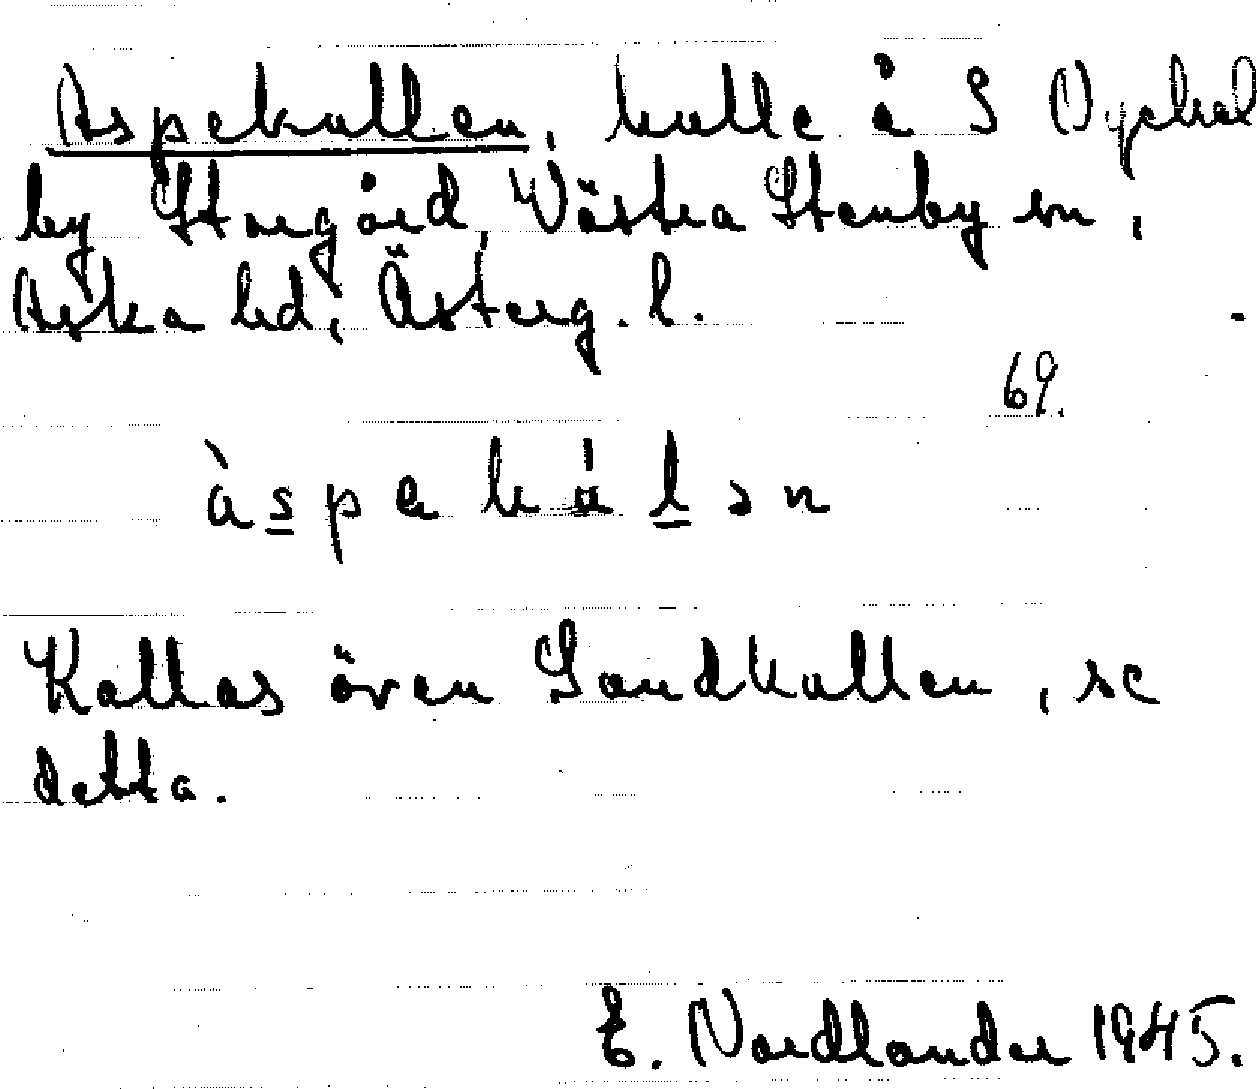 Aspekullen, kulle å S Nyckel
by Storgård, Västra Stenby sn,
Aska hd, Österg. l.
69.
àspekálən
Kallas även Sandkullen, se
detta.
E. Nordlander 1945.